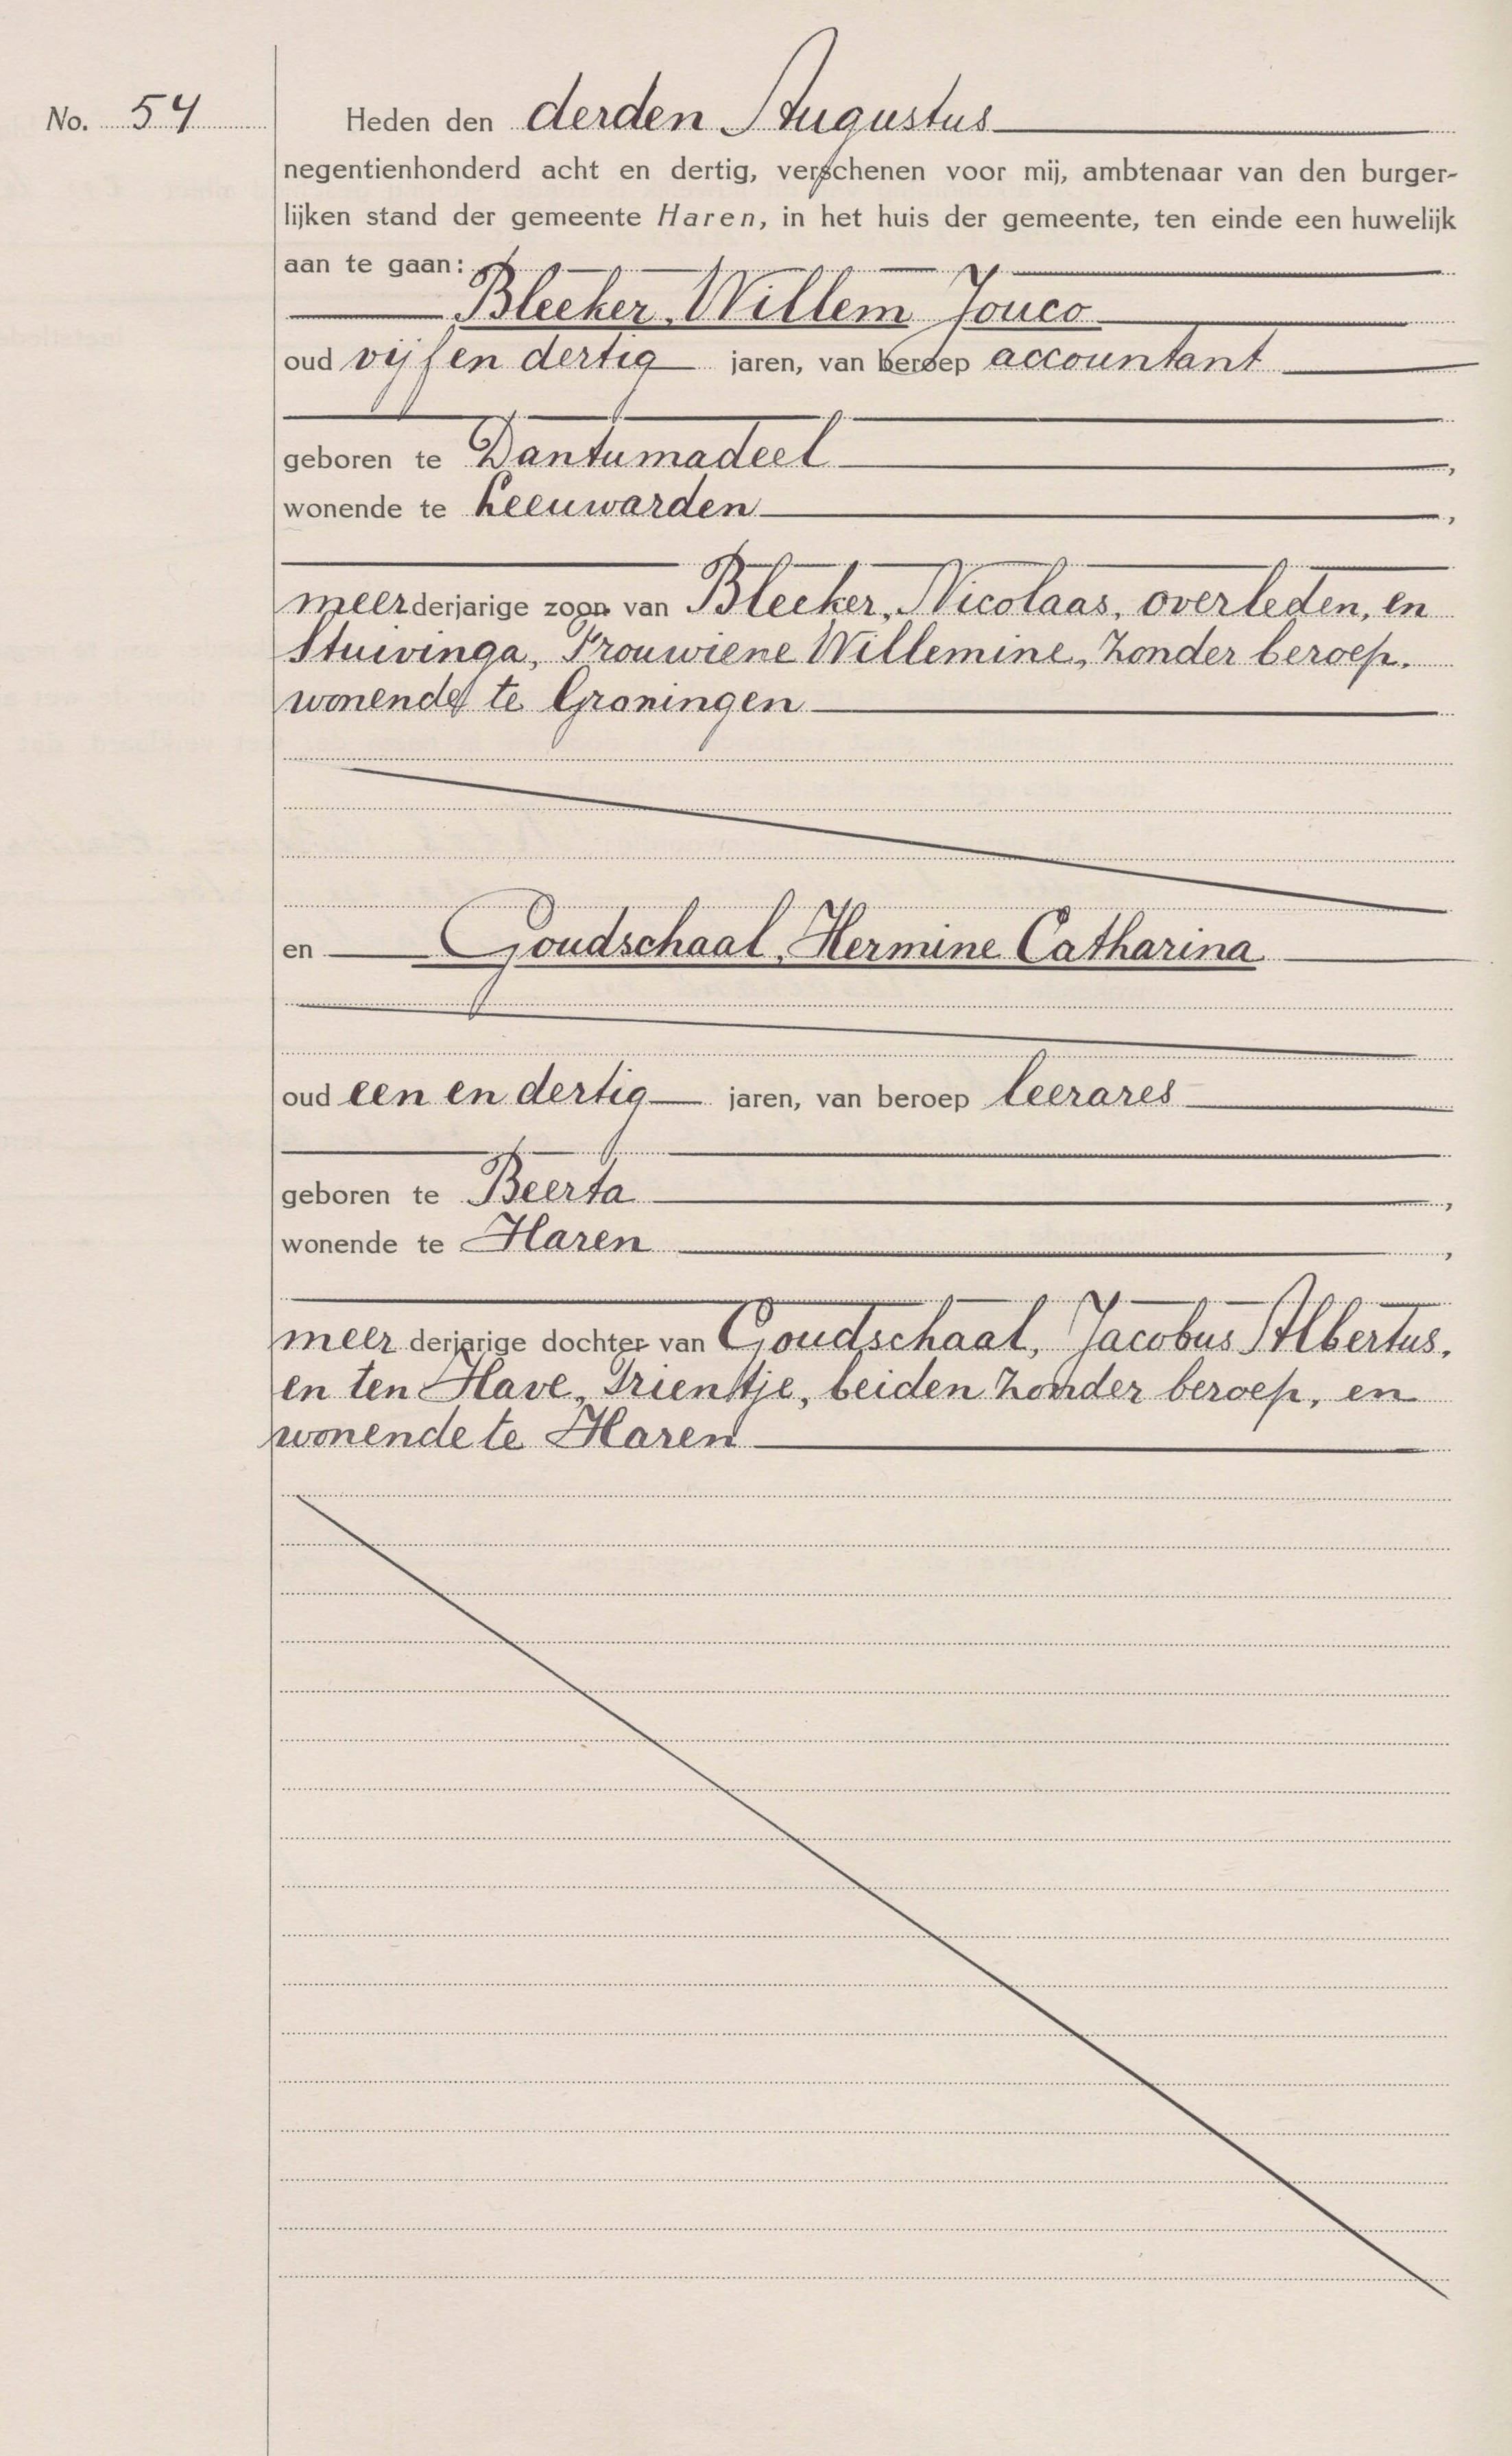 No. 54
Heden den derden Augustus
negentienhonderd acht en dertig, verschenen voor mij, ambtenaar van den burger-
lijken stand der gemeente Haren, in het huis der gemeente, ten einde een huwelijk
aan te gaan:
Bleeker, Willem Jouco
oud vijf en dertig jaren, van beroep accountant
geboren te Dantumadeel,
wonende te Leeuwarden,
meerderjarige zoon van Bleeker, Nicolaas, overleden, en
Stuivinga, Frouwiene Willemine, zonder beroep,
wonende te Groningen
en Goudschaal, Hermine Catharina
oud een en dertig jaren, van beroep leerares
geboren te Beerta,
wonende te Haren,
meerderjarige dochter van Goudschaal, Jacobus Albertus,
en ten Have, Trientje, beiden zonder beroep, en
wonende te Haren